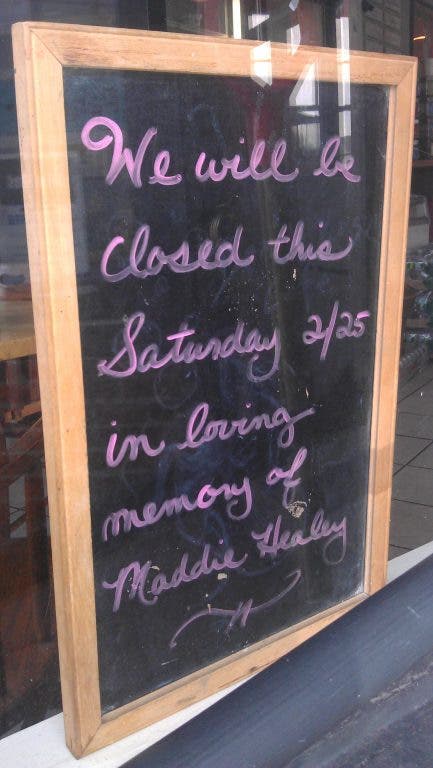 We will be
closed this
Saturday 2/25
in loving
memory of
Maddie Healey